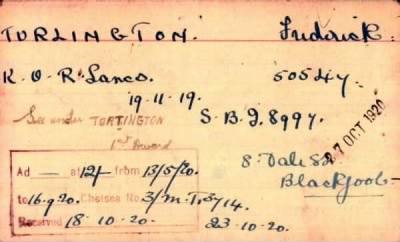 TURLINGTON. Frederick.
K.O.R. Lancs. 50547.
19.11.19.
See under TORTINGTON S.B.J. 8997.
1st Award
27 OCT 1920
8. Dale St
Blackpool.
Ad — at 12/- from 13/5/20.
to 16.9.20. Chelsea No. 3/M.T. 3/14.
Received 18.10.20. 23.10.20.